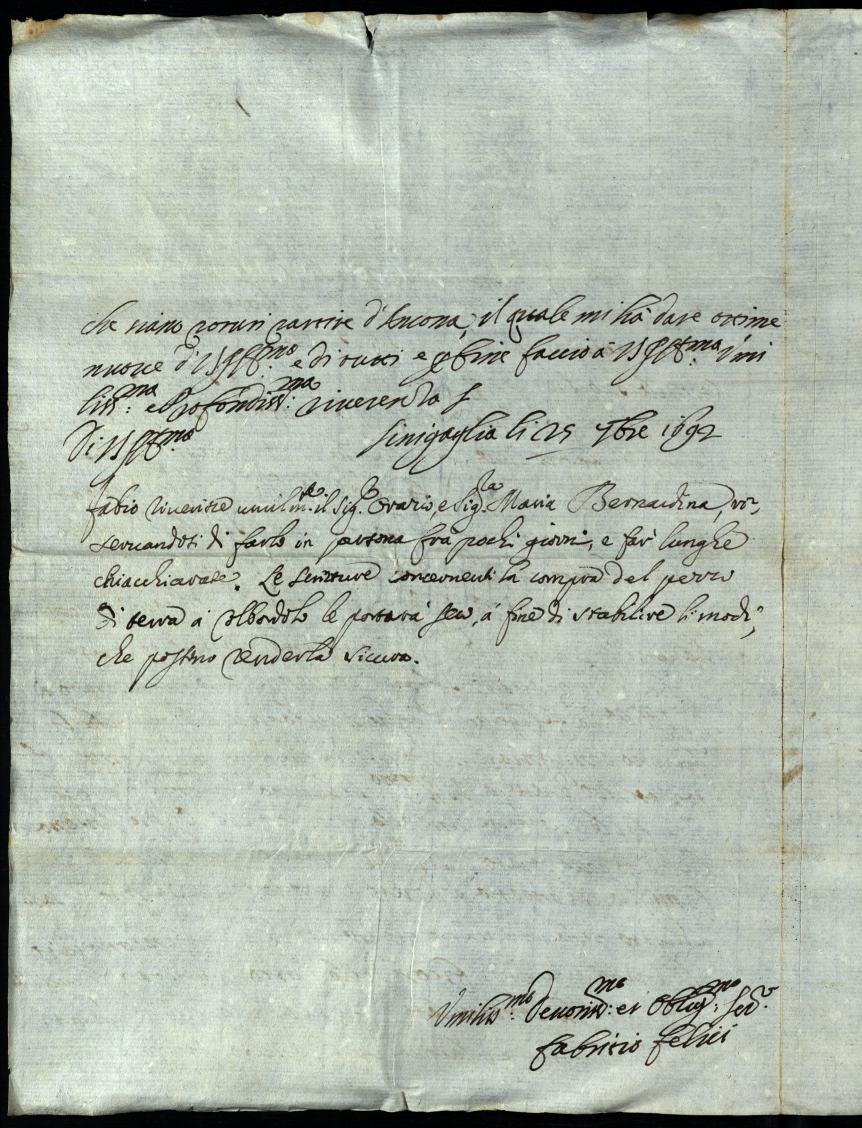 che siano potuti partire d'Ancona, il quale mi hà dato ottime
nuove di VS Ill:mo e di tutti e p fine faccio à VS Ill:ma Umi
liss:ma e Profondiss:ma riverenza
Di VS Ill:mo Sinigaglia li 25 9bre 1692
Fabio riverisce umilm:te il Sig:r Orazio, e Sig:ra Maria Bernardina, ri-
servandosi di farlo in persona frà pochi giorni, e far lunghe
chiacchiarate. Le scritture concernenti la compra del pezzo
di terra à le portarà seco, à fine di stabilire li modi,
che possino renderla sicura.
Umiliss:mo Devotiss:mo et Oblig:mo Ser:v
Fabritio Felici